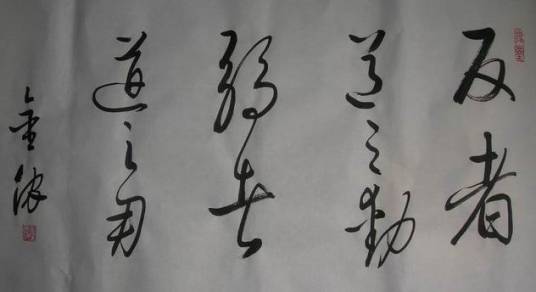 反者
道之動
弱者
道之用